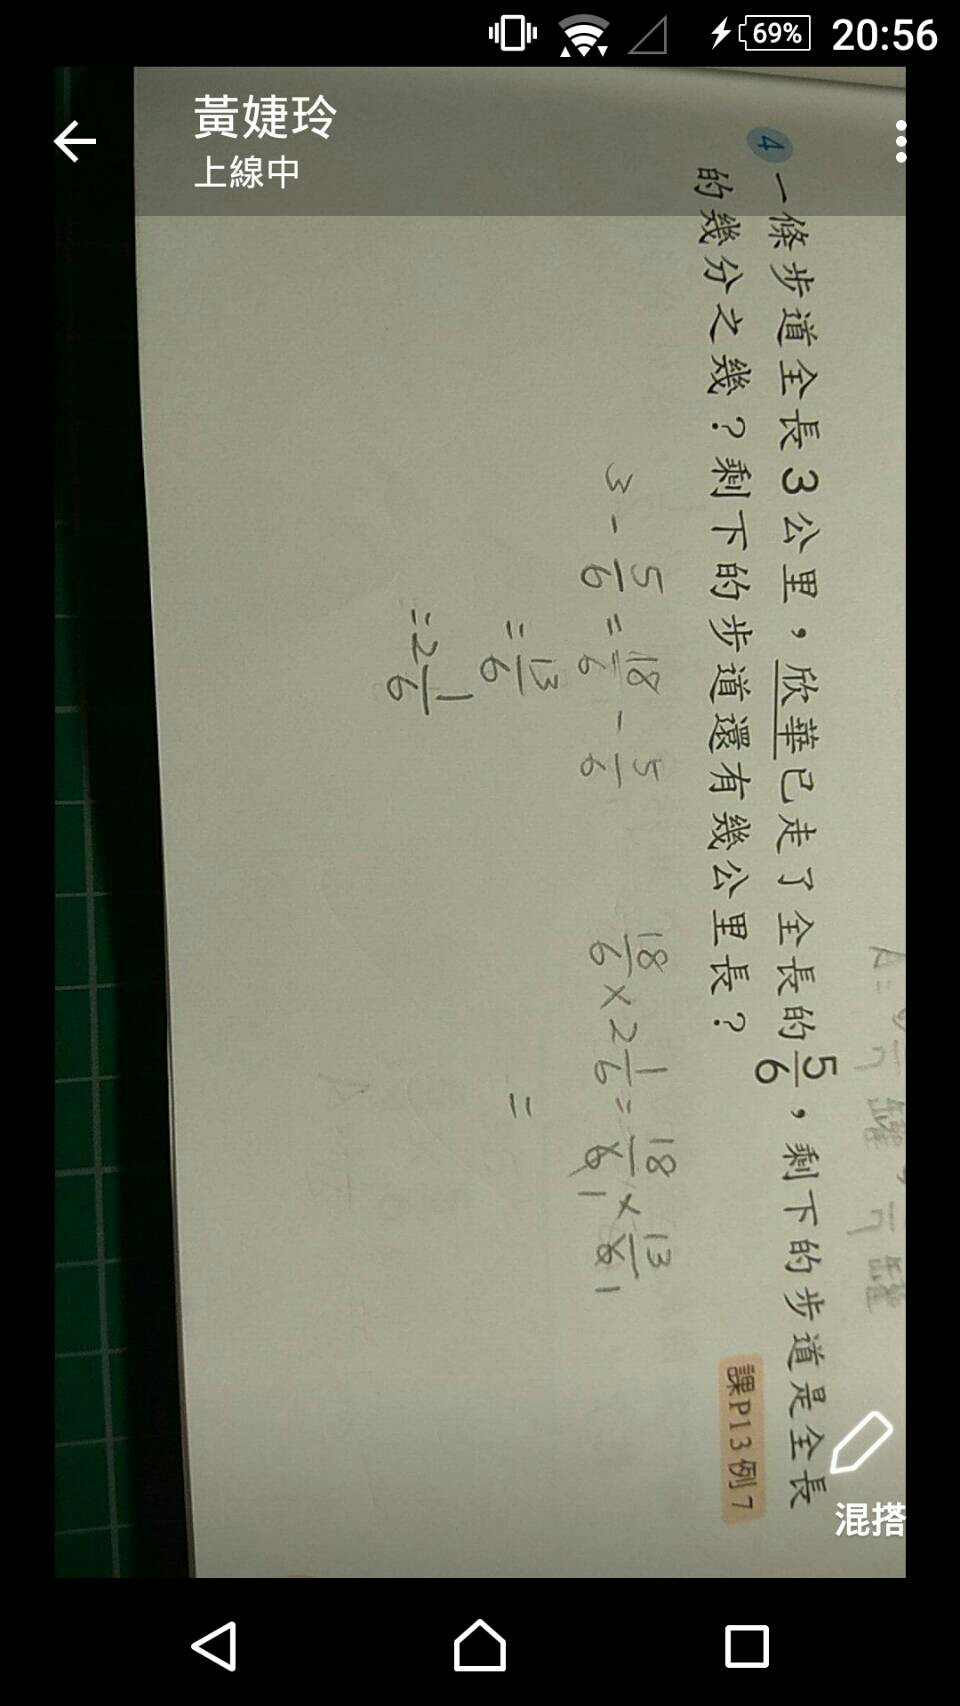 69% 20:56
黃婕玲
上線中
4 一條步道全長3公里，欣華已走了全長的5/6，剩下的步道是全長
的幾分之幾？剩下的步道還有幾公里長？
課P13例7
3 - 5/6 = 18/6 - 5/6
= 13/6
= 2 1/6
18/6 × 2 1/6 = 18/6 1 × 13/6 1
=
混搭